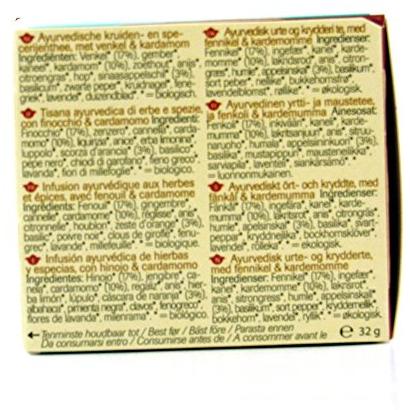 Ayurvedische kruiden- en spe-
cerijenthee, met venkel & kardamom
Ingrediënten: Venkel* (17%), gember*,
kaneel*, kardamom* (10%), zoethout*, anijs*,
citroengras*, hop*, sinaasappelschil* (3%),
basilicum*, zwarte peper*, kruidnagel*, fene-
griek*, lavendel*, duizendblad*. * = biologisch.
Tisana ayurvedica di erbe e spezie,
con finocchio & cardamomo Ingredienti:
Finocchio* (17%), zenzero*, cannella*, carda-
momo* (10%), liquirizia*, anice*, erba limonina*,
luppolo*, scorza d'arancia* (3%), basilico*,
pepe nero*, chiodi di garofano*, fieno greco*,
lavanda*, fiori di millefoglie*. * = biologico.
Infusion ayurvédique aux herbes
et épices, avec fenouil & cardamome
Ingrédients: Fenouil* (17%), gingembre*,
cannelle*, cardamome* (10%), réglisse*, anis*,
citronnelle*, houblon*, zeste d'orange* (3%),
basilic*, poivre noir*, clous de girofle*, fenu-
grec*, lavande*, millefeuille*. * = biologique.
Infusión ayurvédica de hierbas
y especias, con hinojo & cardamomo
Ingredientes: Hinojo* (17%), jengibre*,
canela*, cardamomo* (10%), regaliz*, anís*, hier-
ba limón*, lúpulo*, cáscara de naranja* (3%),
albahaca*, pimienta negra*, clavos*, fenogreco*,
flores de lavanda*, milenrama*. * = biológico.
Ayurvedisk urte og krydderi te, med
fennikel & kardemomme Ingredienser:
Fennikel* (17%), ingefær*, kanel*, karde-
momme* (10%), lakridsrod*, anis*, citron-
græs*, humle*, appelsinskal* (3%), basilikum*,
sort peber*, nellike*, bukkehornsfrø*,
lavendelblomst*, røllike*. * = økologisk.
Ayurvedinen yrtti- ja maustetee,
ja fenkoli & kardemumma Ainesosat:
Fenkoli* (17%), inkivääri*, kaneli*, karde-
mumma* (10%), lakritsanjuuri*, anis*, sitruu-
naruoho*, humala*, appelsiininkuori* (3%),
basilika*, mustapippuri*, mausteneilikka*,
sarviapila*, laventeli*, siankärsämö*.
* = luonnonmukainen.
Ayurvediskt ört- och kryddte, med
fänkål & kardemumma Ingredienser:
Fänkål* (17%), ingefära*, kanel*, karde-
mumma* (10%), lakritsrot*, anis*, citrongräs*,
humle*, apelsinskal* (3%), basilika*,
svartpeppar*, kryddnejlika*, bockhornsklöver*,
lavendel*, rölleka*. * = ekologisk.
Ayurvedisk urte- og krydderte,
med fennikel & kardemomme
Ingredienser: Fennikel* (17%), ingefær*,
kanel*, kardemomme* (10%), lakrisrot*,
anis*, sitrongress*, humle*, appelsinskall*
(3%), basilikum*, sort pepper*, kryddernellik*,
bokkehorn*, lavendel*, ryllik*. * = økologisk.
Tenminste houdbaar tot / Best før / Bäst före / Parasta ennen
Da consumarsi entro / Consumirse antes de / A consommer avant le
e 32 g